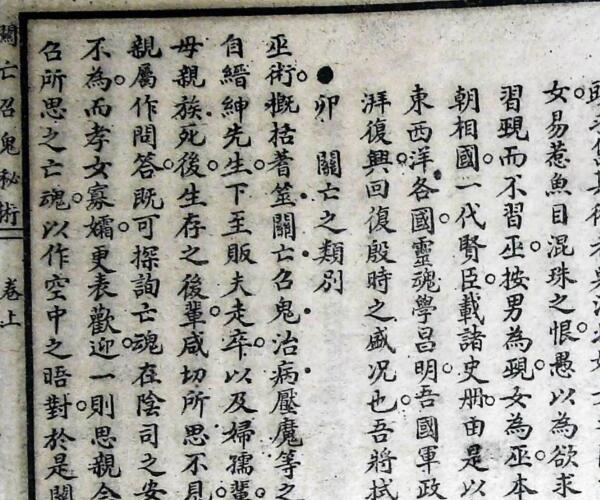 女易惹魚目混珠之恨愚以為欲求
習覡而不習巫按男為覡女為巫本
朝相國一代賢臣載諸史册由是以
東西洋各國靈魂學昌明吾國軍政
湃復興回復殷時之盛况也吾將拭
●卯 關亡之類別
巫術概括蓍筮關亡召鬼治病壓魔等之
自縉紳先生下至販夫走卒以及婦孺輩
母親族死後生存之後輩咸切所思不見
親屬作問答既可探詢亡魂在陰司之安
不為而孝女寡孀更表歡迎一則思親念
召所思之亡魂以作空中之晤對於是關
關亡召鬼秘術 卷上